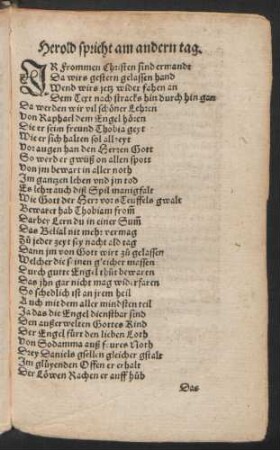 Herold spricht am andern tag.
IR Frommen Christen sind ermandt
Da wirs gestern gelassen hand
Wend wirs jetz wider fahen an
Dem Text nach stracks hin durch hin gan
Da werden wir vil schöner Lehren
Von Raphael dem Engel hören
Die er seim freund Thobia geyt
Wie er sich halten sol allzeyt
Vor augen han den Herren Gott
So werd er gwüß on allen spott
Von jm bewart in aller noth
Im gantzen leben vnd jm tod
Es lehrt auch diß Spil manigfalt
Wie Gott der Herr vors Teuffels gwalt
Bewaret hab Thobiam from̃
Darbey Lern du in einer Sum̃
Das Belial nit mehr vermag
Zu jeder zeyt sey nacht old tag
Dann jm von Gott wirt zu gelassen
Welcher die seinen gleicher massen
Durch gutte Engel thut bewaren
Das jhn gar nicht mag widerfaren
So schedlich ist an jrem heil
Auch mit dem aller mindsten teil
Ja das die Engel dienstbar sind
Den außerwelten Gottes Kind
Der Engel fürt den lieben Loth
Von Sodamma auß feures Noth
Drey Daniels gsellen gleicher gstalt
Im glüyenden Offen er erhalt
Der Löwen Rachen er auff hüb
Das